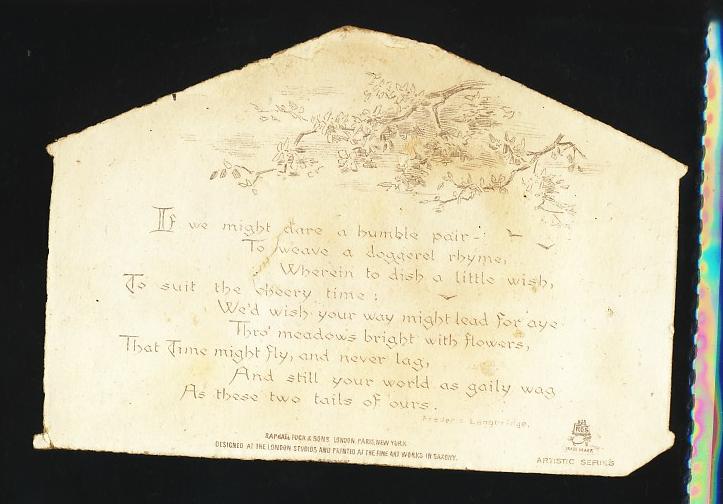 If we might dare a humble pair -
To weave a doggerel rhyme,
Wherein to dish a little wish,
To suit the cheery time :
We'd wish your way might lead for aye
Thro' meadows bright with flowers,
That Time might fly, and never lag,
And still your world as gaily wag
As these two tails of ours.
Frederic Langbridge.
RAPHAEL TUCK & SONS, LONDON, PARIS, NEW YORK.
DESIGNED AT THE LONDON STUDIOS AND PRINTED AT THE FINE ART WORKS IN SAXONY.
TRADE MARK
ARTISTIC SERIES